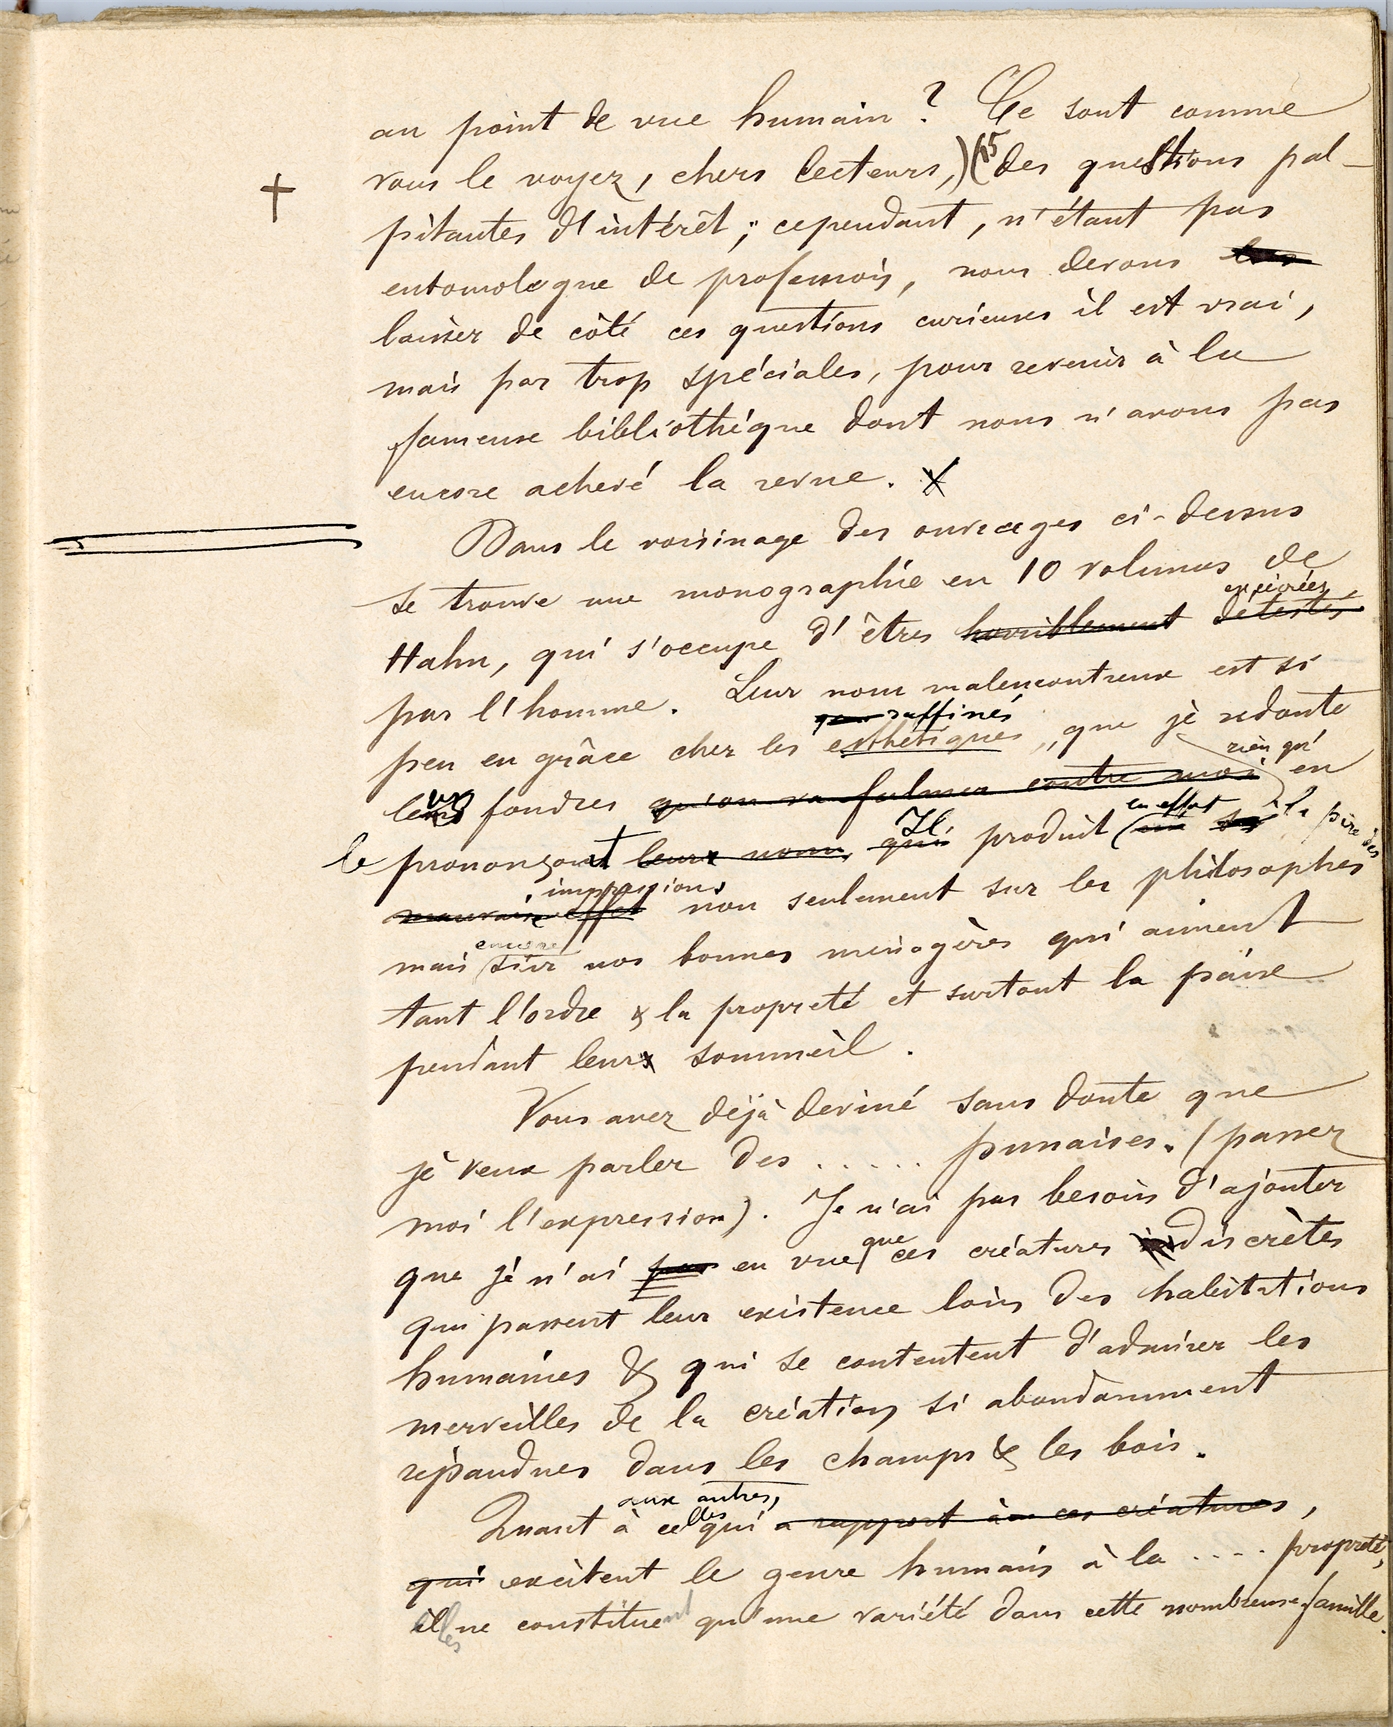 au point de vue humain ? Ce sont comme
vous le voyez, chers lecteurs,) (15 des questions pal-
pitantes d'intérêt ; cependant, n'étant pas
entomologue de profession, nous devons les
laisser de côté ces questions curieuses il est vrai,
mais par trop spéciales, pour revenir à la
fameuse bibliothèque dont nous n'avons pas
encore achevé la revue.
Dans le voisinage des ouvrages ci-dessus
se trouve une monographie en 10 volumes de
exécrées
Hahn, qui s'occupe d'êtres horriblement détestés
par l'homme. Leur nom malencontreux est si
raffinés
peu en grâce chez les esthétiques, que je redoute
rien qu'
leurs foudres qu'on va fulminer contre moi en
en effet
le prononçant leurs noms, qui Il produit la pire des
impressions
mauvais effet non seulement sur les philosophes
encore
mais sur nos bonnes ménagères qui aiment
tant l'ordre & la propreté et surtout la paix
pendant leurs sommeil.
Vous avez déjà deviné sans doute que
je veux parler des ..... punaises. (passez
moi l'expression). Je n'ai pas besoin d'ajouter
que
que je n'ai pas en vue ces créatures indiscrètes
qui passent leur existence loin des habitations
humaines & qui se contentent d'admirer les
merveilles de la création si abondamment
répandues dans les champs & les bois.
aux autres,
Quant à celles qui a rapport à ces créatures,
qui excitent le genre humain à la .... propreté,
elles ne constituent qu'une variété dans cette nombreuse famille.